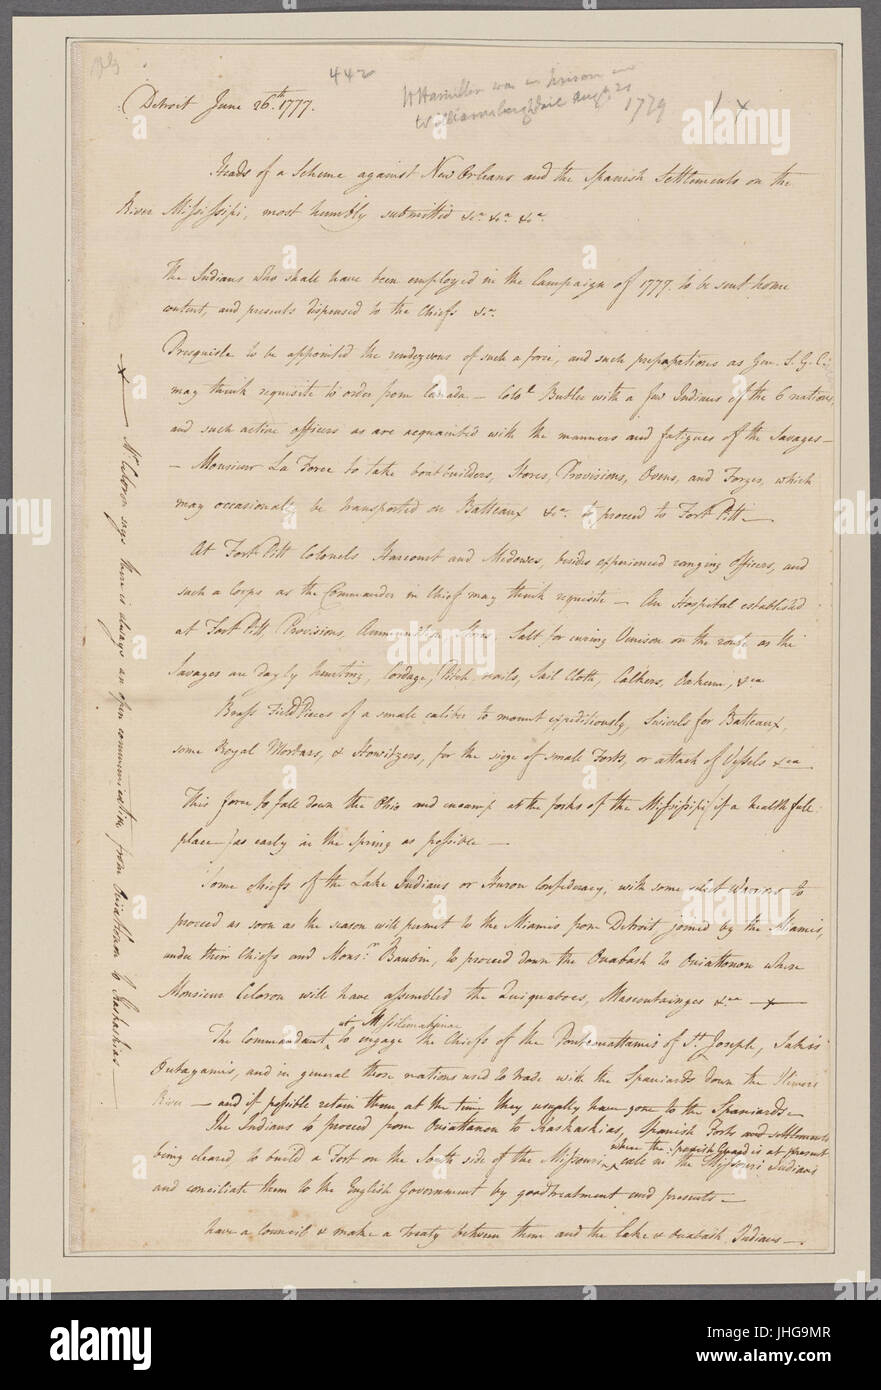 442
H Hamilton was in prison in
Williamsburgh jail Augt 21
1779
1 x
Detroit June 26.th 1777.
Heads of a Scheme against New Orleans and the Spanish Settlements on the
River Missisipi, most humbly submitted &ca &ca &ca
The Indians who shall have been employed in the Campaign of 1777 to be sent home
content, and presents dispensed to the Chiefs &ca
Presquisle to be appointed the rendezvous of such a force, and such preparations as Gen. S. G. C
may think requisite to order from Canada — Colo.l Butler with a few Indians of the 6 nations,
and such active officers as are acquainted with the manners and fatigues of the Savages —
— Monsieur La Force to take boatbuilders, Stores, Provisions, Ovens, and Forges, which
may occasionally be transported on Batteaux &ca to proceed to Fort Pitt —
At Fort Pitt Colonels Harcourt and Medowes, besides experienced ranging officers, and
such a Corps as the Commander in Chief may think requisite — An Hospital established
at Fort Pitt, Provisions, Ammunition, Salt for curing Venison on the route as the
Savages are dayly hunting, Cordage, Pitch, nails, Sail Cloth, Calkers, Oakum, &ca
Brass Field Pieces of a small caliber to mount expeditiously, Swivels for Batteaux,
some Royal Mortars, & Howitzers, for the siege of small Forts, or attack of Vessels &ca —
This force to fall down the Ohio and encamp at the forks of the Missisipi (if a healthfull
place) as early in the spring as possible —
Some chiefs of the Lake Indians or Huron Confederacy, with some select Warriors to
proceed as soon as the season will permit to the Miamis from Detroit joined by the Miamis,
under their Chiefs and Mons.r Baubin, to proceed down the Ouabash to Ouiattonon where
Monsieur Celoron will have assembled the Quiquaboes, Mascoutainges &ca — x —
The Commandant at Missilimakinac to engage the Chiefs of the Pouteouattamis of St. Joseph, Sakis
Outagamis, and in general those nations used to trade with the Spaniards down the Ilinois
River — and if possible retain them at the time they usually have gone to the Spaniards —
The Indians to proceed from Ouiattonon to Kaskaskias, Spanish Forts and settlements
being cleared, to build a Fort on the South side of the Missouri where the Spanish Guard is at present — call in the Missouri Indians
and conciliate them to the English Government by good treatment and presents —
have a council & make a treaty between them and the Lake & Ouabash Indians —
x — Mr Celoron says there is always an open communication from Ouiattonon to Kaskaskias —
alamy
alamy stock photo
JHG9MR
www.alamy.com